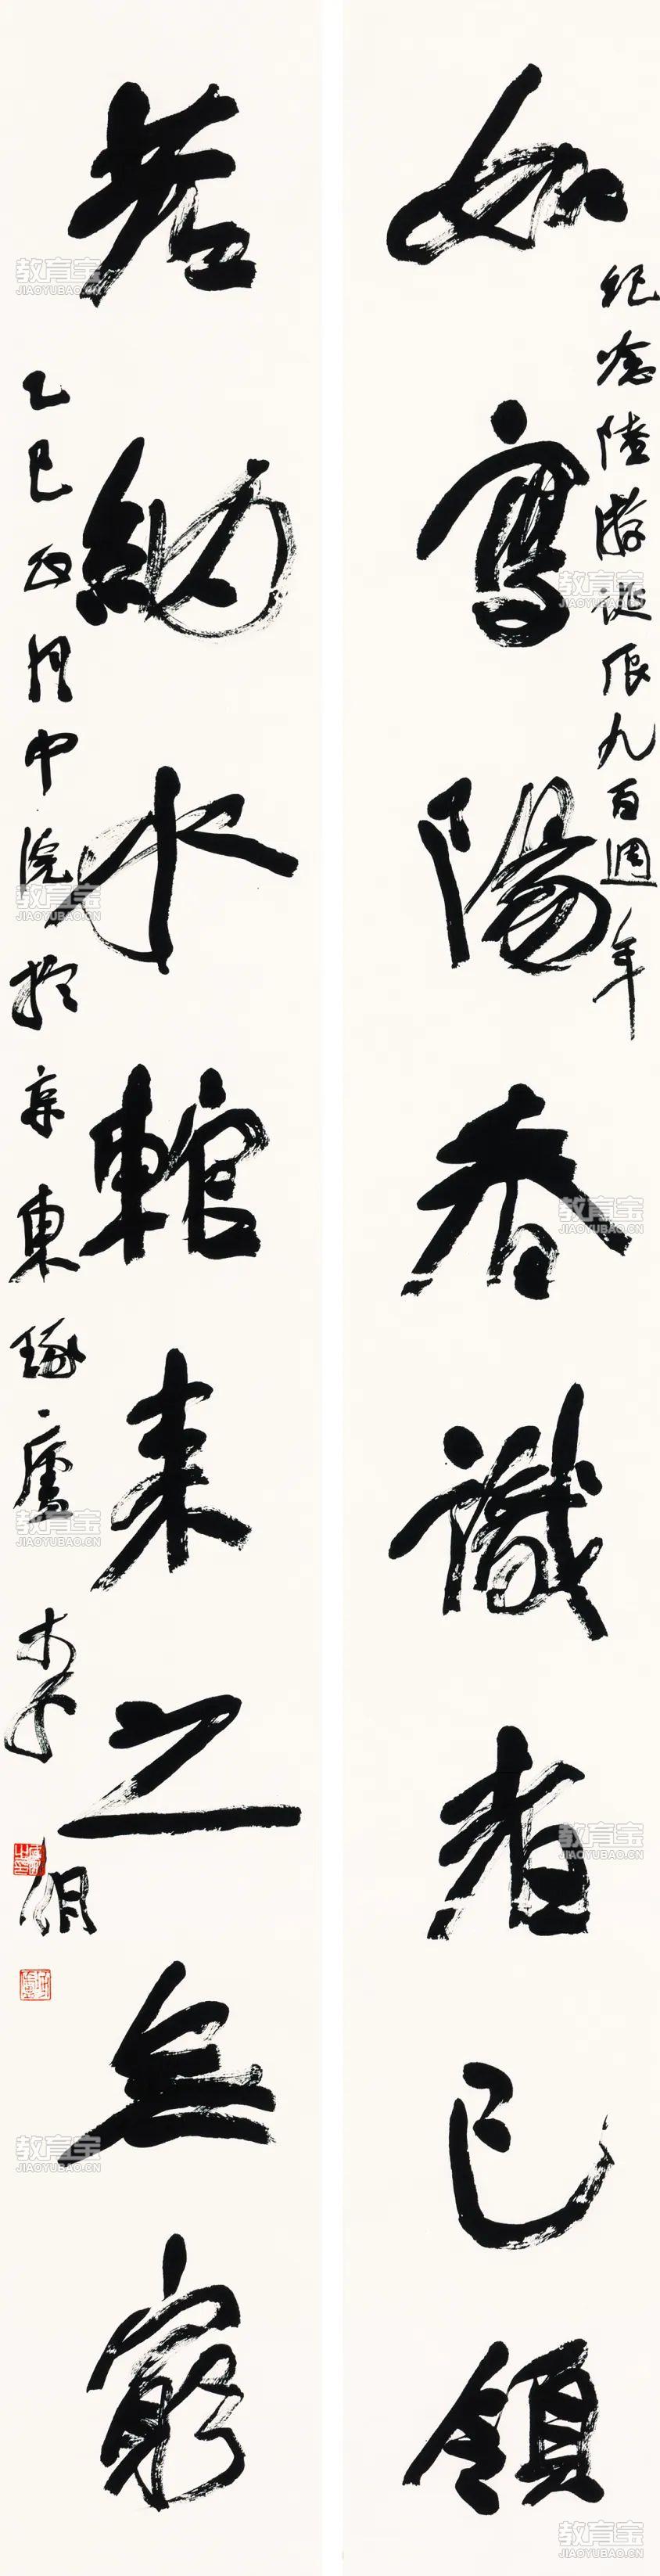 紀念陸游誕辰九百週年
如寫陽春識者已領
若納水輨來之無窮
乙巳
月中浣於京東琢廬
李明
教育宝
JIAOYUBAO.CN
教育宝
JIAOYUBAO.CN
教育宝
JIAOYUBAO.CN
教育宝
JIAOYUBAO.CN
教育宝
JIAOYUBAO.CN
教育宝
JIAOYUBAO.CN
教育宝
JIAOYUBAO.CN
教育宝
JIAOYUBAO.CN